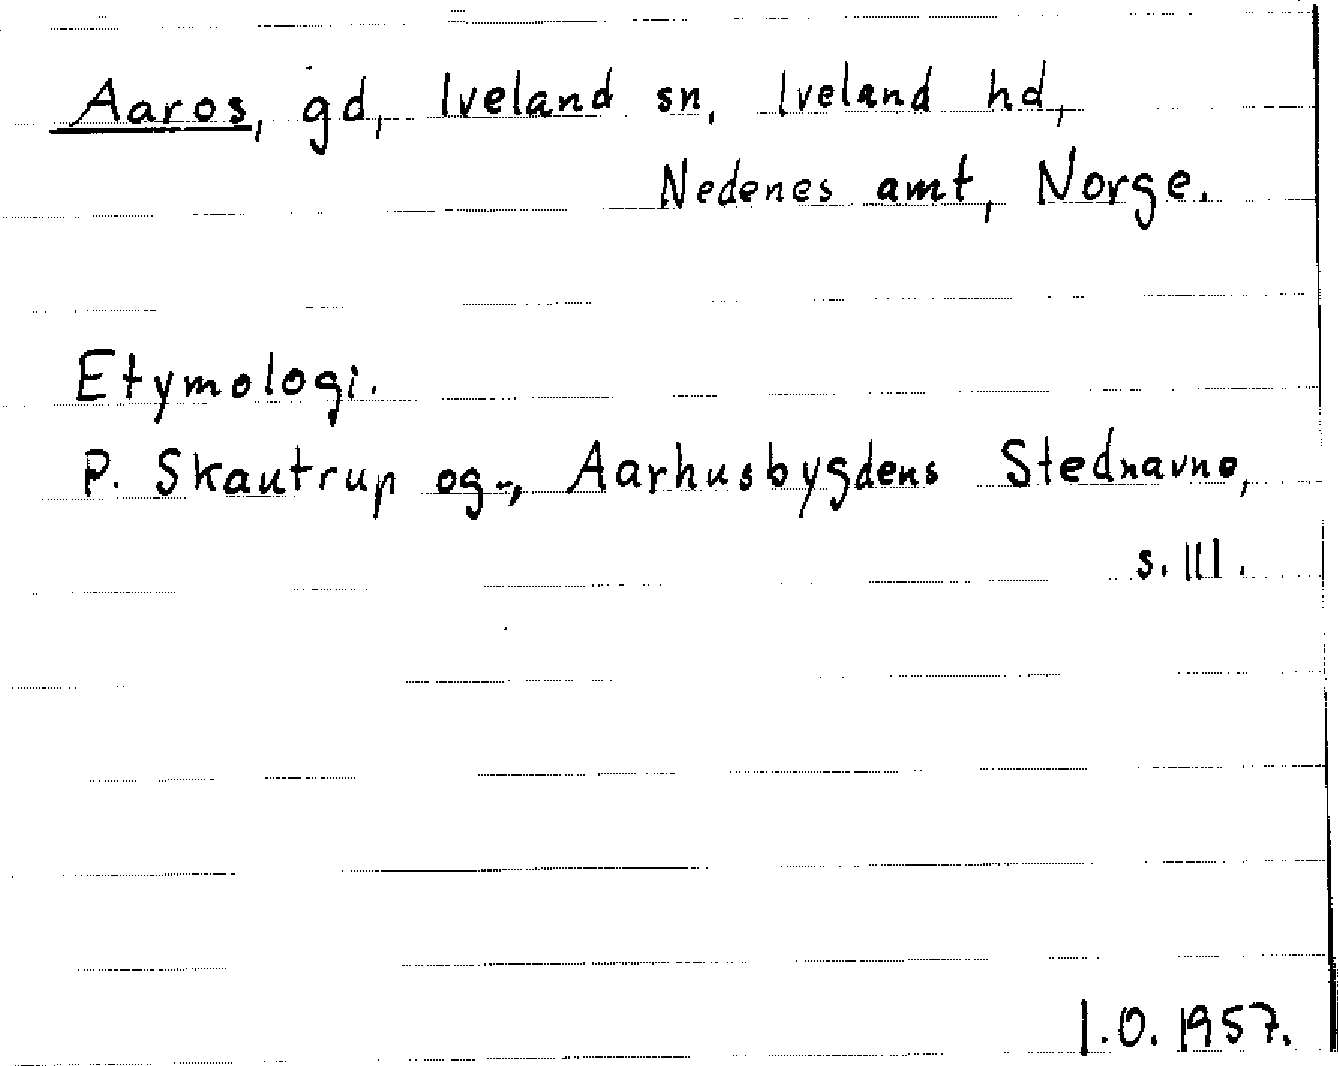 Aaros, gd, Iveland sn, Iveland hd,
Nedenes amt, Norge.
Etymologi.
P. Skautrup og -, Aarhusbygdens Stednavne,
s. 111.
I.O. 1957.